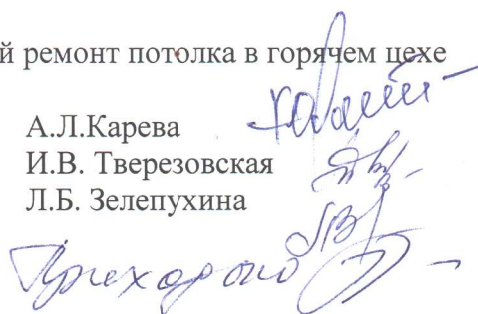 й ремонт потолка в горячем цехе
А.Л.Карева
И.В. Тверезовская
Л.Б. Зелепухина